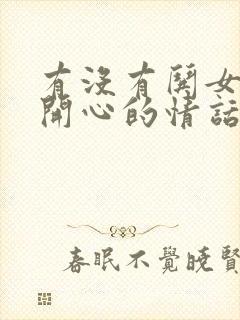 有沒有鬨女
開心的情話
春眠不覺曉賢